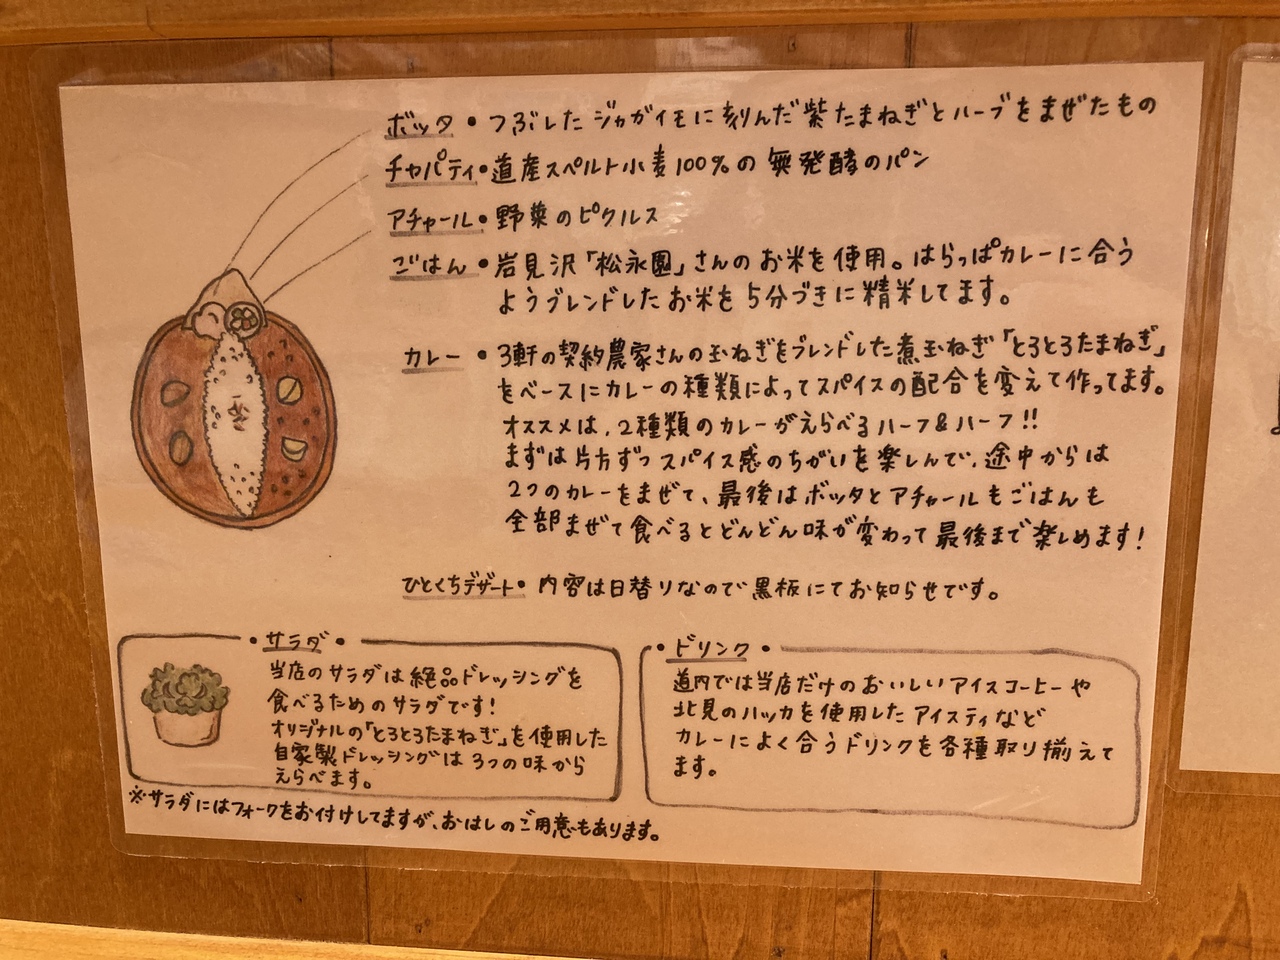 ボッタ・つぶしたジャガイモに刻んだ紫たまねぎとハーブをまぜたもの
チャパティ・道産スペルト小麦100%の無発酵のパン
アチャール・野菜のピクルス
ごはん・岩見沢「松永園」さんのお米を使用。はらっぱカレーに合う
ようブレンドしたお米を5分づきに精米してます。
カレー・3軒の契約農家さんの玉ねぎをブレンドした煮玉ねぎ「とろとろたまねぎ」
をベースにカレーの種類によってスパイスの配合を変えて作ってます。
オススメは、2種類のカレーがえらべるハーフ&ハーフ!!
まずは片方ずつスパイス感のちがいを楽しんで、途中からは
2つのカレーをまぜて、最後はボッタとアチャールもごはんも
全部まぜて食べるとどんどん味が変わって最後まで楽しめます!
ひとくちデザート・内容は日替りなので黒板にてお知らせです。
・サラダ・
当店のサラダは絶品ドレッシングを
食べるためのサラダです!
オリジナルの「とろとろたまねぎ」を使用した
自家製ドレッシングは3つの味から
えらべます。
※サラダにはフォークをお付けしてますが、おはしのご用意もあります。
・ドリンク・
道内では当店だけのおいしいアイスコーヒーや
北見のハッカを使用したアイスティなど
カレーによく合うドリンクを各種取り揃えて
ます。